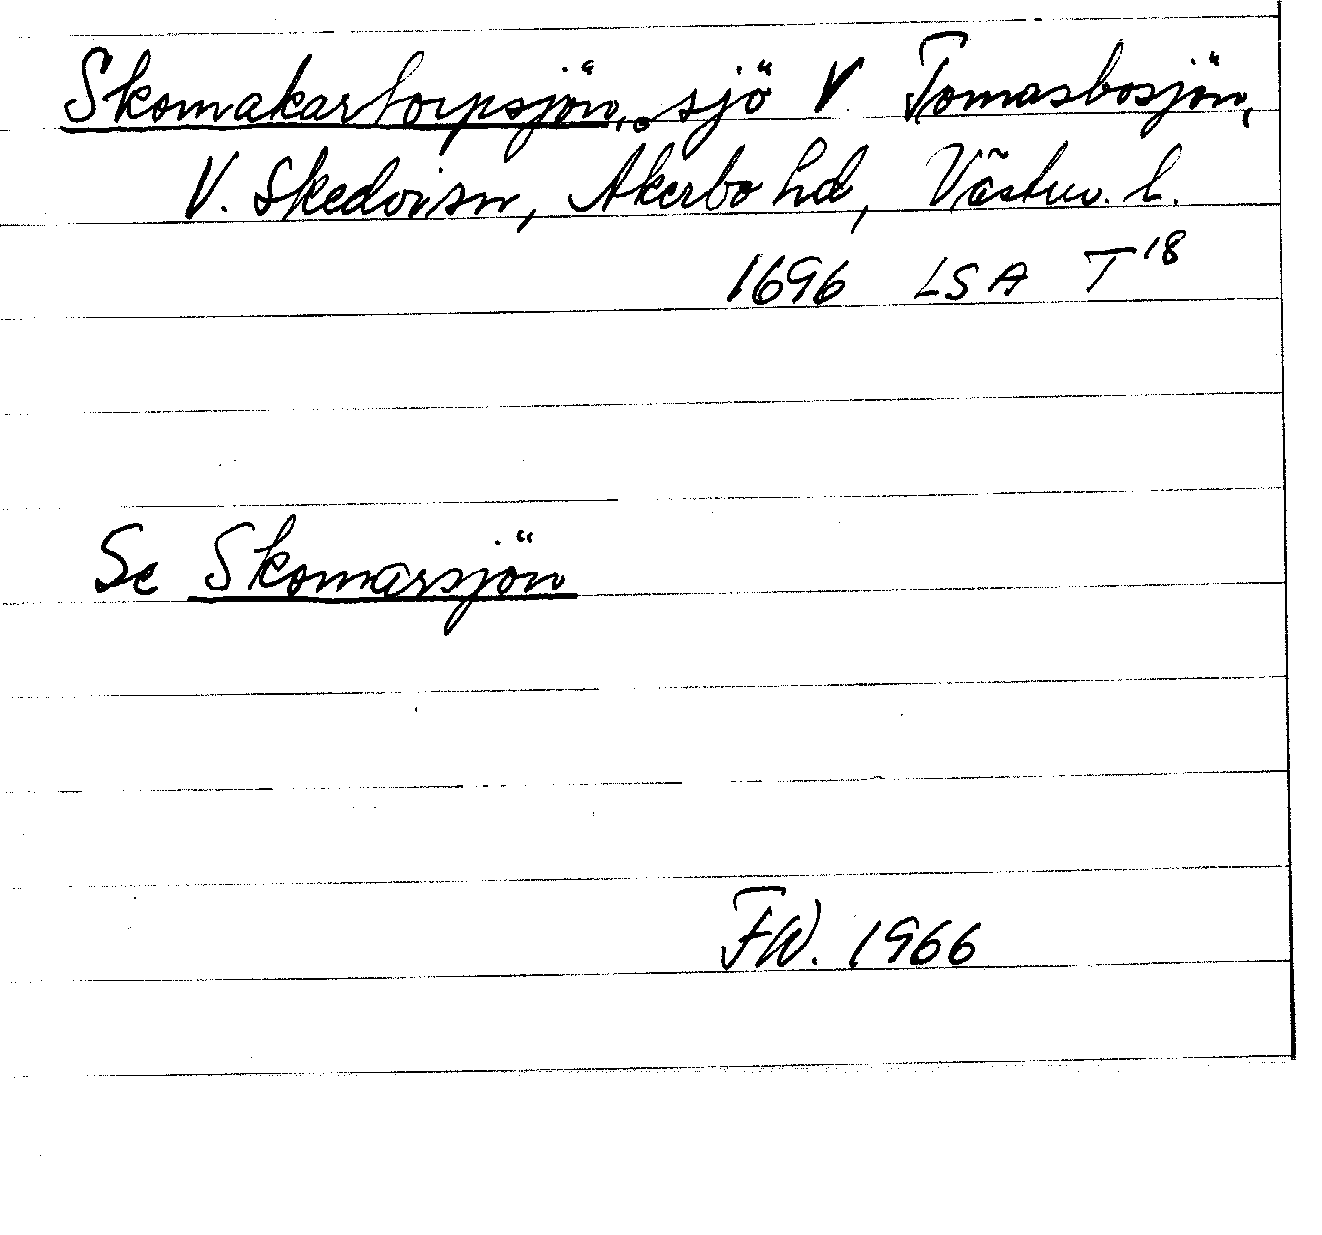 Skomakartorpsjön, sjö V. Tomasbosjön,
V. Skedvi sn, Åkerbo hd, Västm. l.
1696 LSA T 18
Se Skomarsjön
FW. 1966